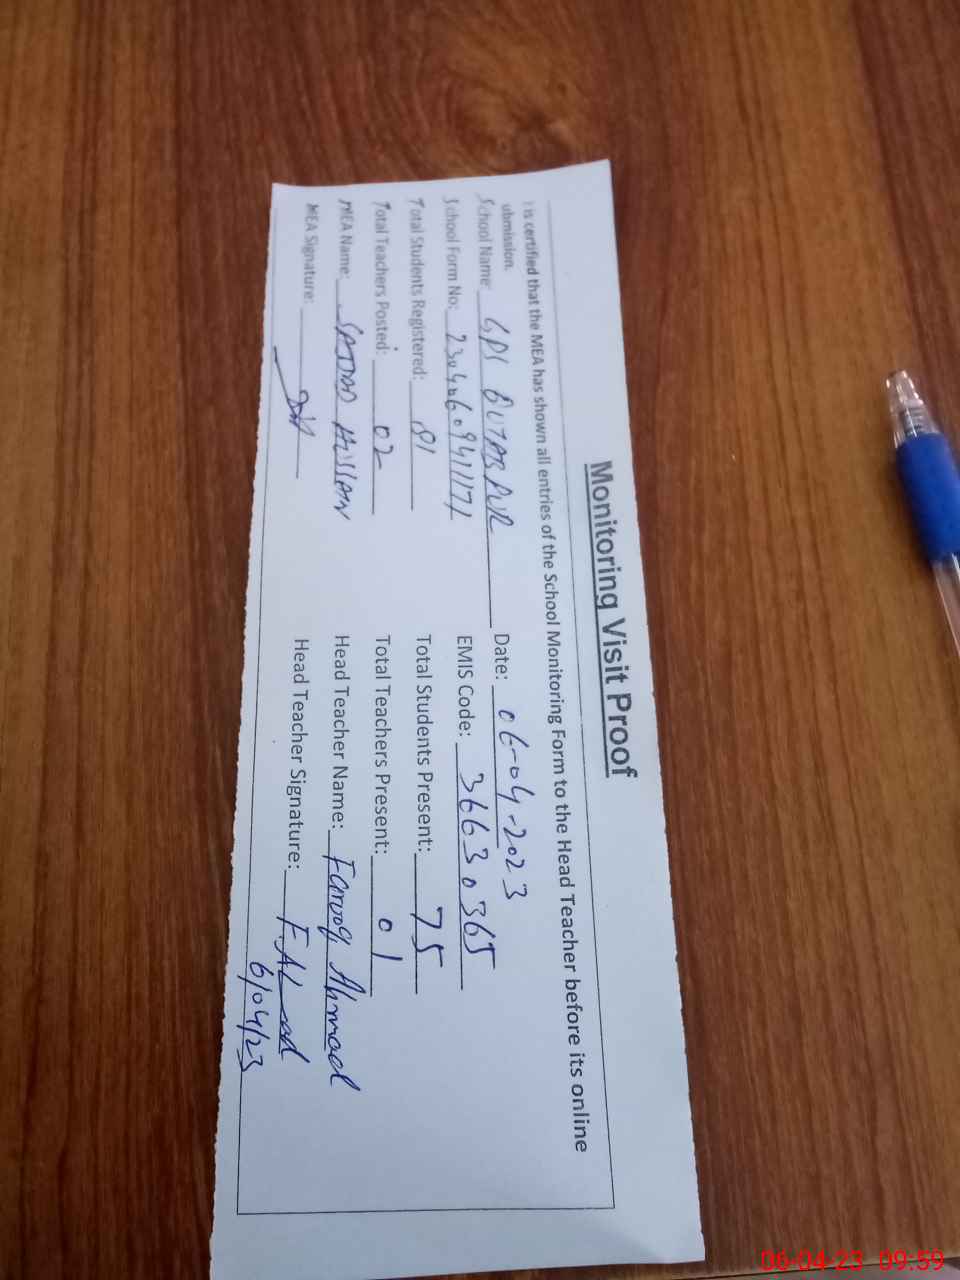 Monitoring Visit Proof
t is certified that the MEA has shown all entries of the School Monitoring Form to the Head Teacher before its online
ubmission.
School Name: GPS QUTABPUR Date: 06-04-2023
School Form No: EMIS Code: 36630365
Total Students Registered: 81 Total Students Present: 75
Total Teachers Posted: 02 Total Teachers Present: 01
MEA Name: SAJJAD HUSSAIN Head Teacher Name: Farooq Ahmad
MEA Signature: Head Teacher Signature:
6/04/23
06-04-23 09:59